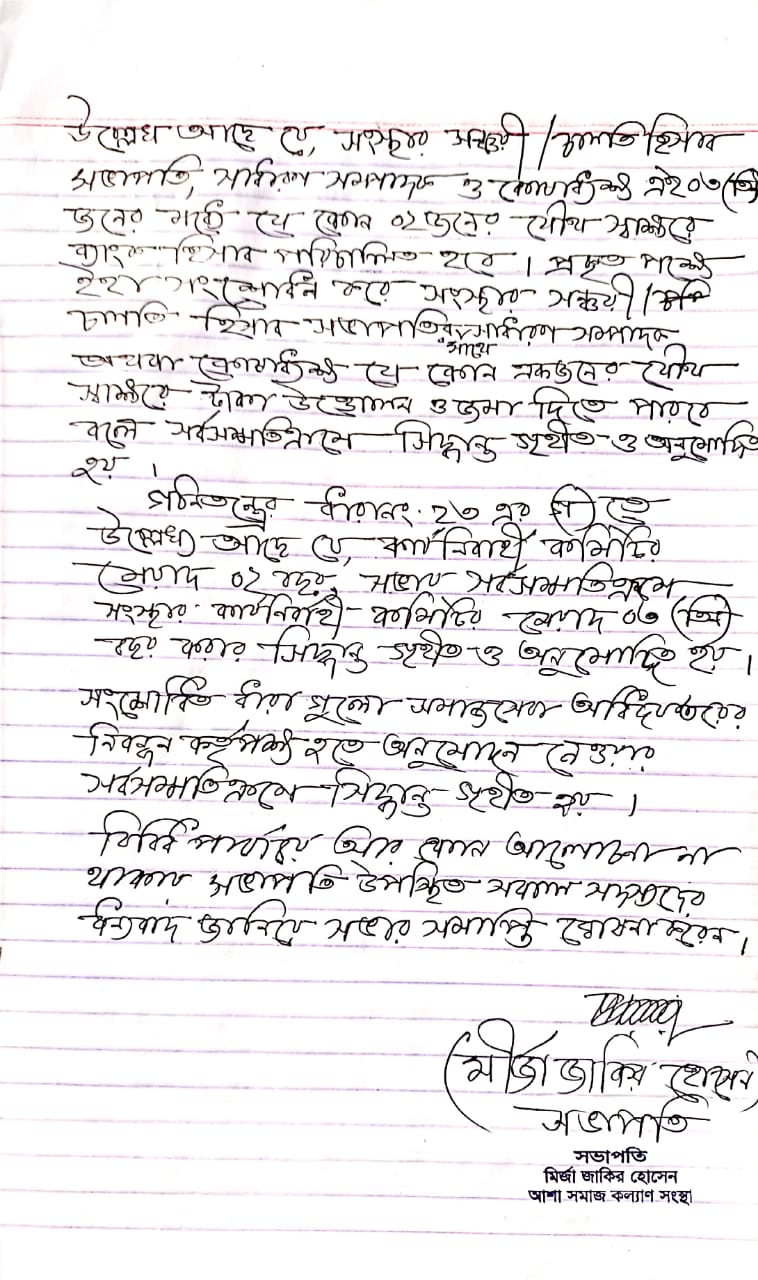 উল্লেখ আছে যে, সংস্থার সঞ্চয়ী /চলতি হিসাব
সভাপতি, সাধারণ সম্পাদক ও কোষাধ্যক্ষ এই ০৩(তিন)
জনের মধ্যে যে কোন ০২জনের যৌথ স্বাক্ষরে
ব্যাংক হিসাব পরিচালিত হবে। প্রকৃত পক্ষে
ইহা সংশোধন করে সংস্থার সঞ্চয়ী /
চলতি হিসাব সভাপতির সাথে সাধারণ সম্পাদক
অথবা কোষাধ্যক্ষ যে কোন একজনের যৌথ
স্বাক্ষরে টাকা উত্তোলন ও জমা দিতে পারবে
বলে সর্বসম্মতিক্রমে সিদ্ধান্ত গৃহীত ও অনুমোদিত
হয়।
গঠনতন্ত্রের ধারানং- ২৩ এর গ) তে
উল্লেখ্য আছে যে, কার্যনির্বাহী কমিটির
মেয়াদ ০২ বছর, সভায় সর্বসম্মতিক্রমে
সংস্থার কার্যনির্বাহী কমিটির মেয়াদ ০৩ (তিন)
বছর করার সিদ্ধান্ত গৃহীত ও অনুমোদিত হয়।
সংশোধিত ধারা গুলো সমাজসেবা অধিদপ্তরের
নিবন্ধন কর্তৃপক্ষ হতে অনুমোদন নেওয়ার
সর্বসম্মতিক্রমে সিদ্ধান্ত গৃহীত হয়।
বিবিধ পর্যায়ে আর কোন আলোচনা না
থাকায় সভাপতি উপস্থিত সকল সদস্যদের
ধন্যবাদ জানিয়ে সভার সমাপ্তি ঘোষনা করেন।
(মীর্জা জাকির হোসেন)
সভাপতি
সভাপতি
মির্জা জাকির হোসেন
আশা সমাজ কল্যাণ সংস্থা